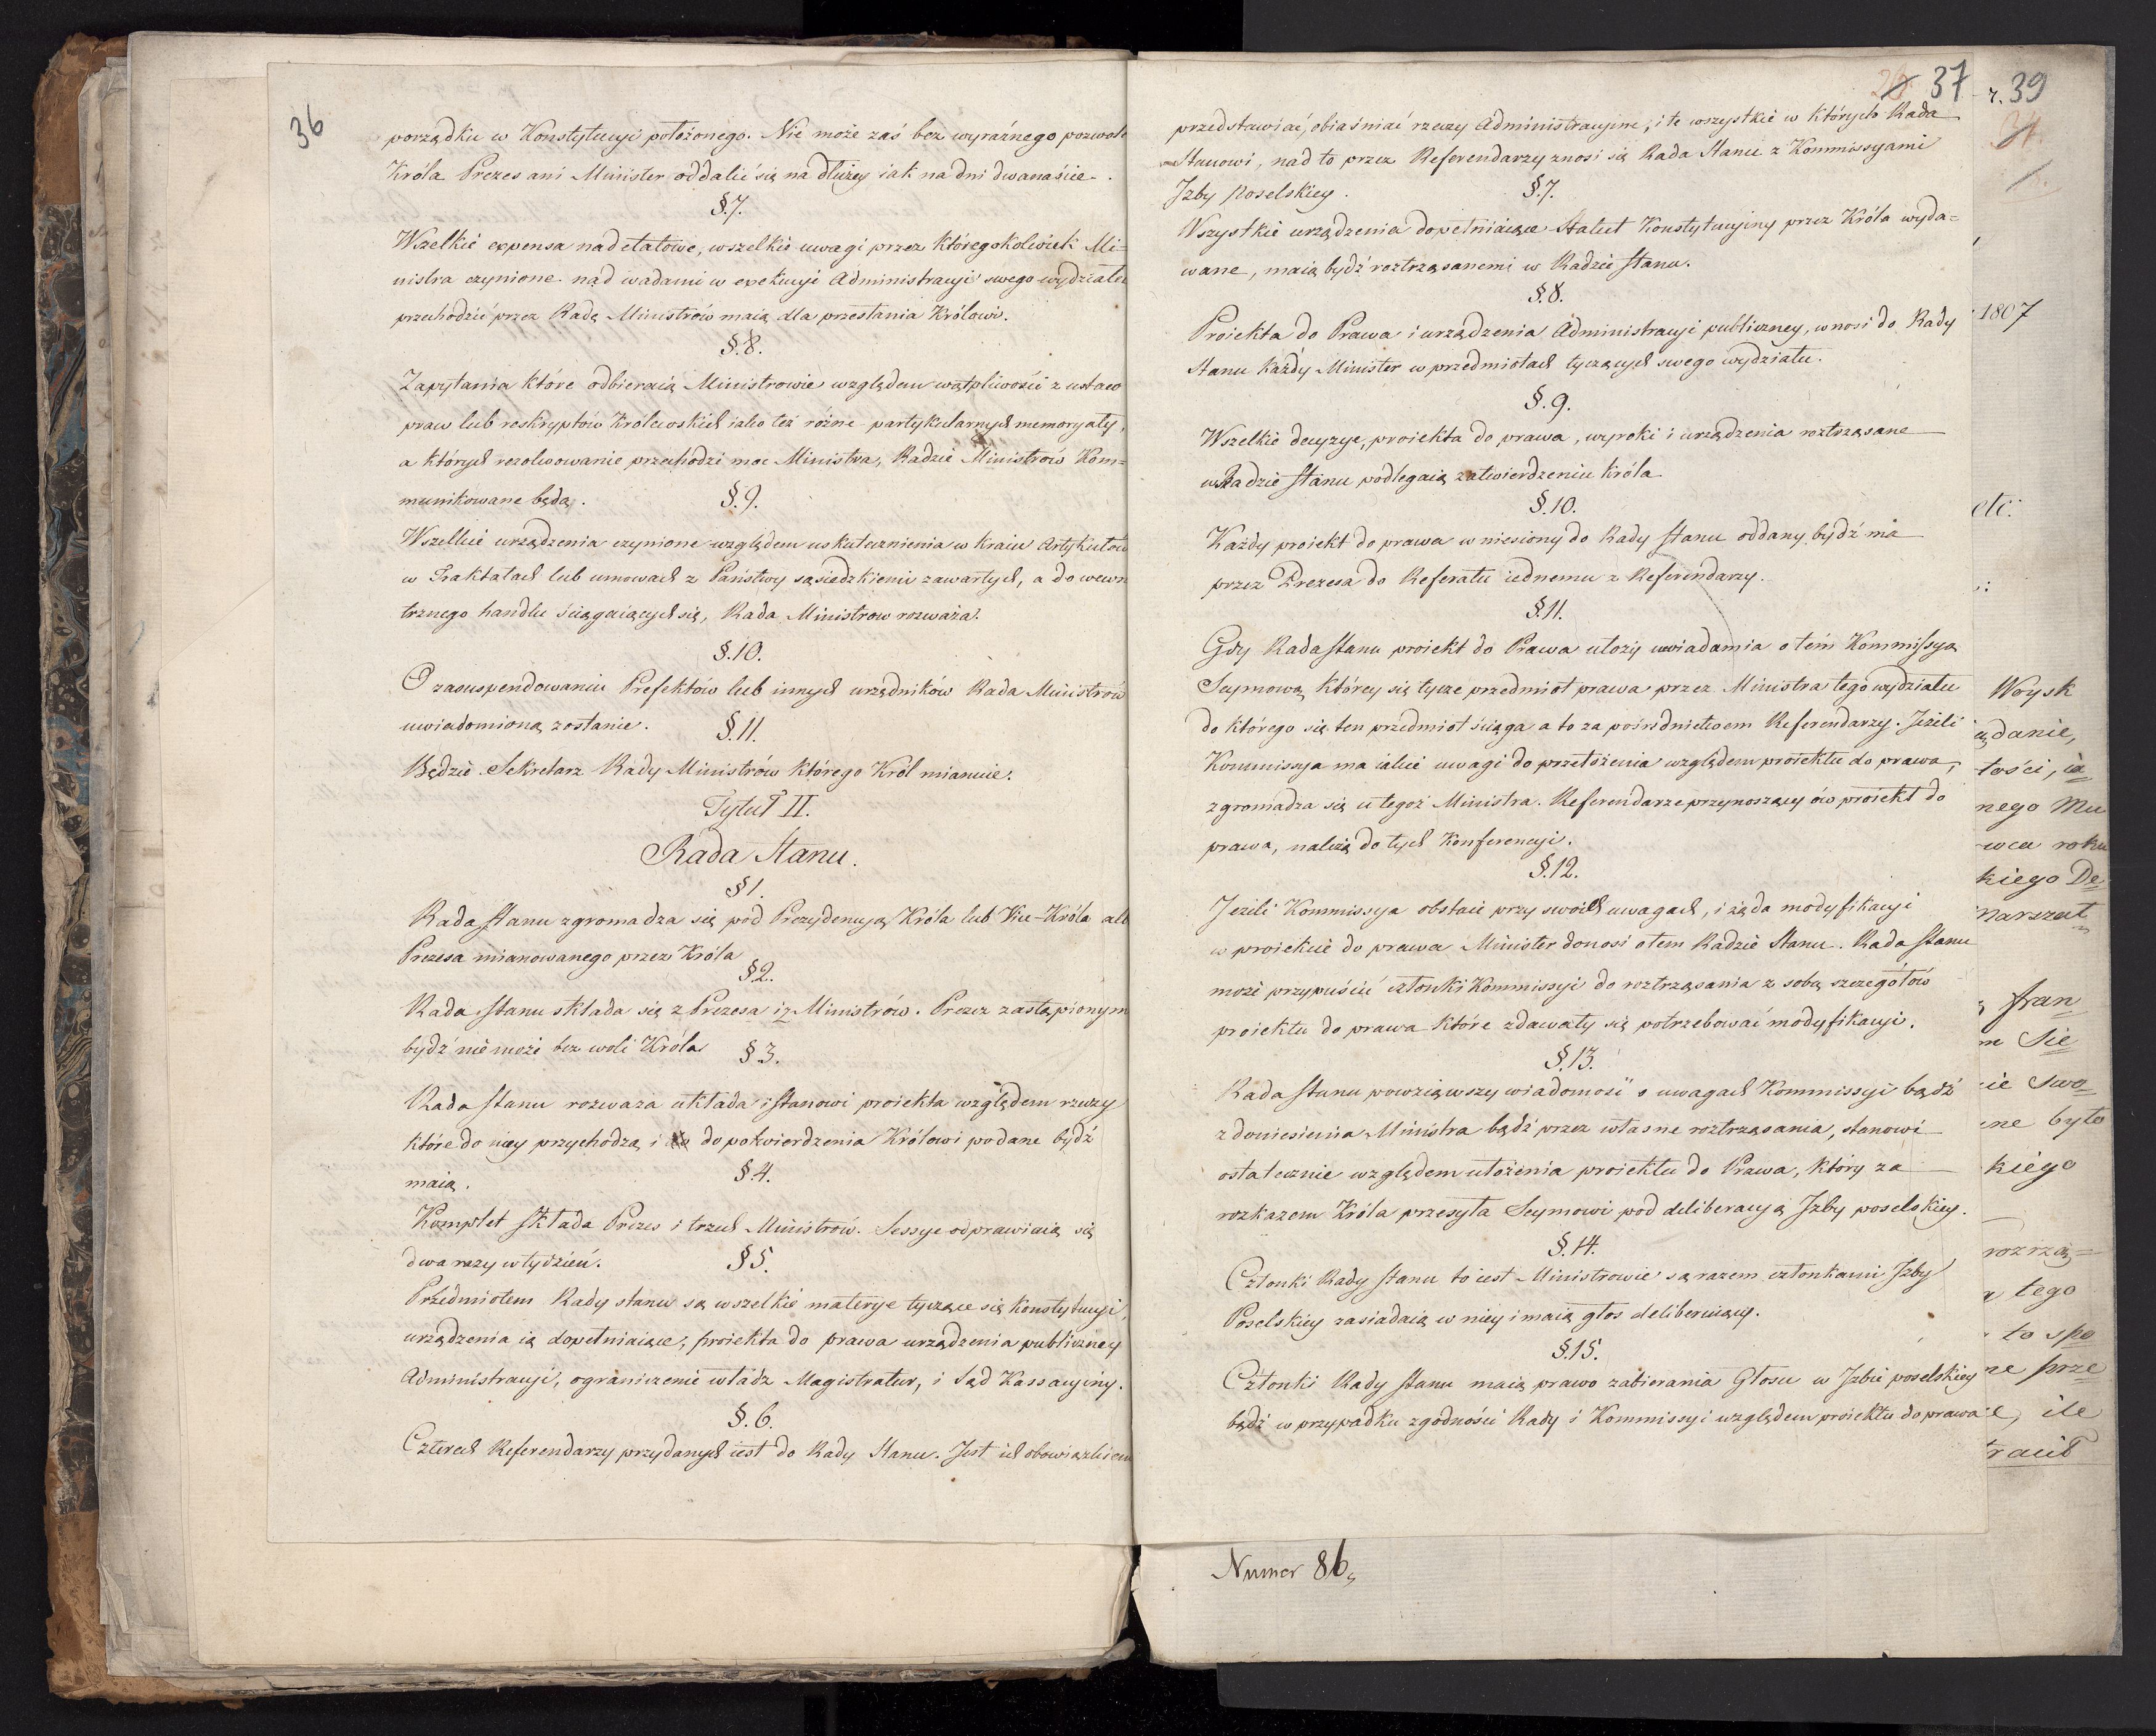 36
porządku w Konstytucyi położonego. Nie może zaś bez wyraźnego pozwole
Króla Prezes ani Minister oddalić się na dłużey iak na dni dwanaście.
§.7.
Wszelkie expensa nadetatowe, wszelkie uwagi przez któregokolwiek Mi=
nistra czynione nad wadami w exekucyi Administracyi swego wydziału
przechodzić przez Radę Ministrów maią dla przesłania Królowi.
§.8.
Zapytania które odbieraią Ministrowie względem wątpliwości z ustaw
praw lub reskryptów Królewskich iako też różne partykularnych memoryały,
a których rezolwowanie przechodzi moc Ministra, Radzie Ministrów Kom=
munikowane będą.
§.9.
Wszelkie urządzenia czynione względem uskutecznienia w kraiu Artykułów
w Traktatach lub umowach z Państwy sąsiedzkiemi zawartych, a do wewn
trznego handlu ściągaiących się, Rada Ministrow rozważa.
§.10.
O zasuspendowaniu Prefektów lub innych urzędników Rada Ministrów
uwiadomioną zostanie.
§.11.
Będzie Sekretarz Rady Ministrów którego Król mianuie.
Tytuł II.
Rada Stanu.
§1.
Rada Stanu zgromadza się pod Prezydencyą Króla lub Vice-Króla alb
Prezesa mianowanego przez Króla
§2.
Rada Stanu składa się z Prezesa i Ministrów. Prezez zastąpionym
bydź nie może bez woli Króla
§3.
Rada Stanu rozważa układa i stanowi proiekta względem rzeczy
które do niey przychodzą i do potwierdzenia Królowi podane bydź
maią.
§.4.
Komplet składa Prezes i trzech Ministrów. Sessye odprawiaią się
dwa razy w tydzień.
§5.
Przedmiotem Rady stanu są wszelkie materye tyczące się Konstytucyi,
urządzenia ią dopełniaiące, proiekta do prawa urządzenia publiczney
Administracyi, ograniczenie władz Magistratur, i Sąd Kassacyiny.
§.6.
Czterech Referendarzy przydanych iest do Rady Stanu. Jest ich obowiązkiem
37
przedstawiać, obiaśniać rzeczy Administracyine, i te wszystkie w których Rada
Stanowi, nad to przez Referendarzy znosi się Rada Stanu z Kommissyami
Izby Poselskiey.
§.7.
Wszystkie urządzenia dopełniaiące Statut Konstytucyiny przez Króla wyda=
wane, maią bydź roztrząsanemi w Radzie Stanu.
§.8.
Proiekta do Prawa i urządzenia Administracyi publiczney, wnosi do Rady
Stanu każdy Minister w przedmiotach tyczących swego wydziału.
§.9.
Wszelkie decyzye, proiekta do prawa, wyroki i urządzenia roztrząsane
w Radzie Stanu podlegaią zatwierdzeniu Króla
§.10.
Każdy proiekt do prawa wniesiony do Rady Stanu oddany bydź ma
przez Prezesa do Referatu iednemu z Referendarzy.
§.11.
Gdy Rada Stanu proiekt do Prawa ułoży uwiadamia o tém Kommissyą
Seymową którey się tycze przedmiot prawa przez Ministra tego wydziału
do którego się ten przedmiot ściąga a to za pośrednictwem Referendarzy. Jeżeli
Kommissya ma iakie uwagi do przełożenia względem proiektu do prawa,
zgromadza się u tegoż Ministra. Referendarze przynoszący ów proiekt do
prawa, należą do tych Konferencyi.
§.12.
Jeżeli Kommissya obstaie przy swoich uwagach, i żąda modyfikacyi
w proiekcie do prawa Minister donosi o tem Radzie Stanu. Rada Stanu
może przypuścić członki Kommissyi do roztrząsania z sobą szczegółów
proiektu do prawa które zdawały się potrzebować modyfikacyi.
§.13.
Rada Stanu powziąwszy wiadomość o uwagach Kommissyi bądź
z doniesienia Ministra bądź przez własne roztrząsania, stanowi
ostatecznie względem ułożenia proiektu do Prawa, który za
rozkazem Króla przesyła Seymowi pod deliberacyą Izby poselskiey.
§.14.
Członki Rady Stanu to iest Ministrowie są razem członkami Izby
Poselskiey zasiadaią w niey i maią głos deliberuiący.
§.15.
Członki Rady Stanu maią prawo zabierania Głosu w Izbie poselskiey
bądź w przypadku zgodności Rady i Kommissyi względem proiektu do prawa
Numer 86.
r. 39
1807
etc:
Woysk
danie,
tości, ia
nego Mu
wca roku
kiego De
Marszał
fran
m Sie
ie swo
ne było
kiego
rozrzą=
tego
to spe
ne prze
e, ile
racił